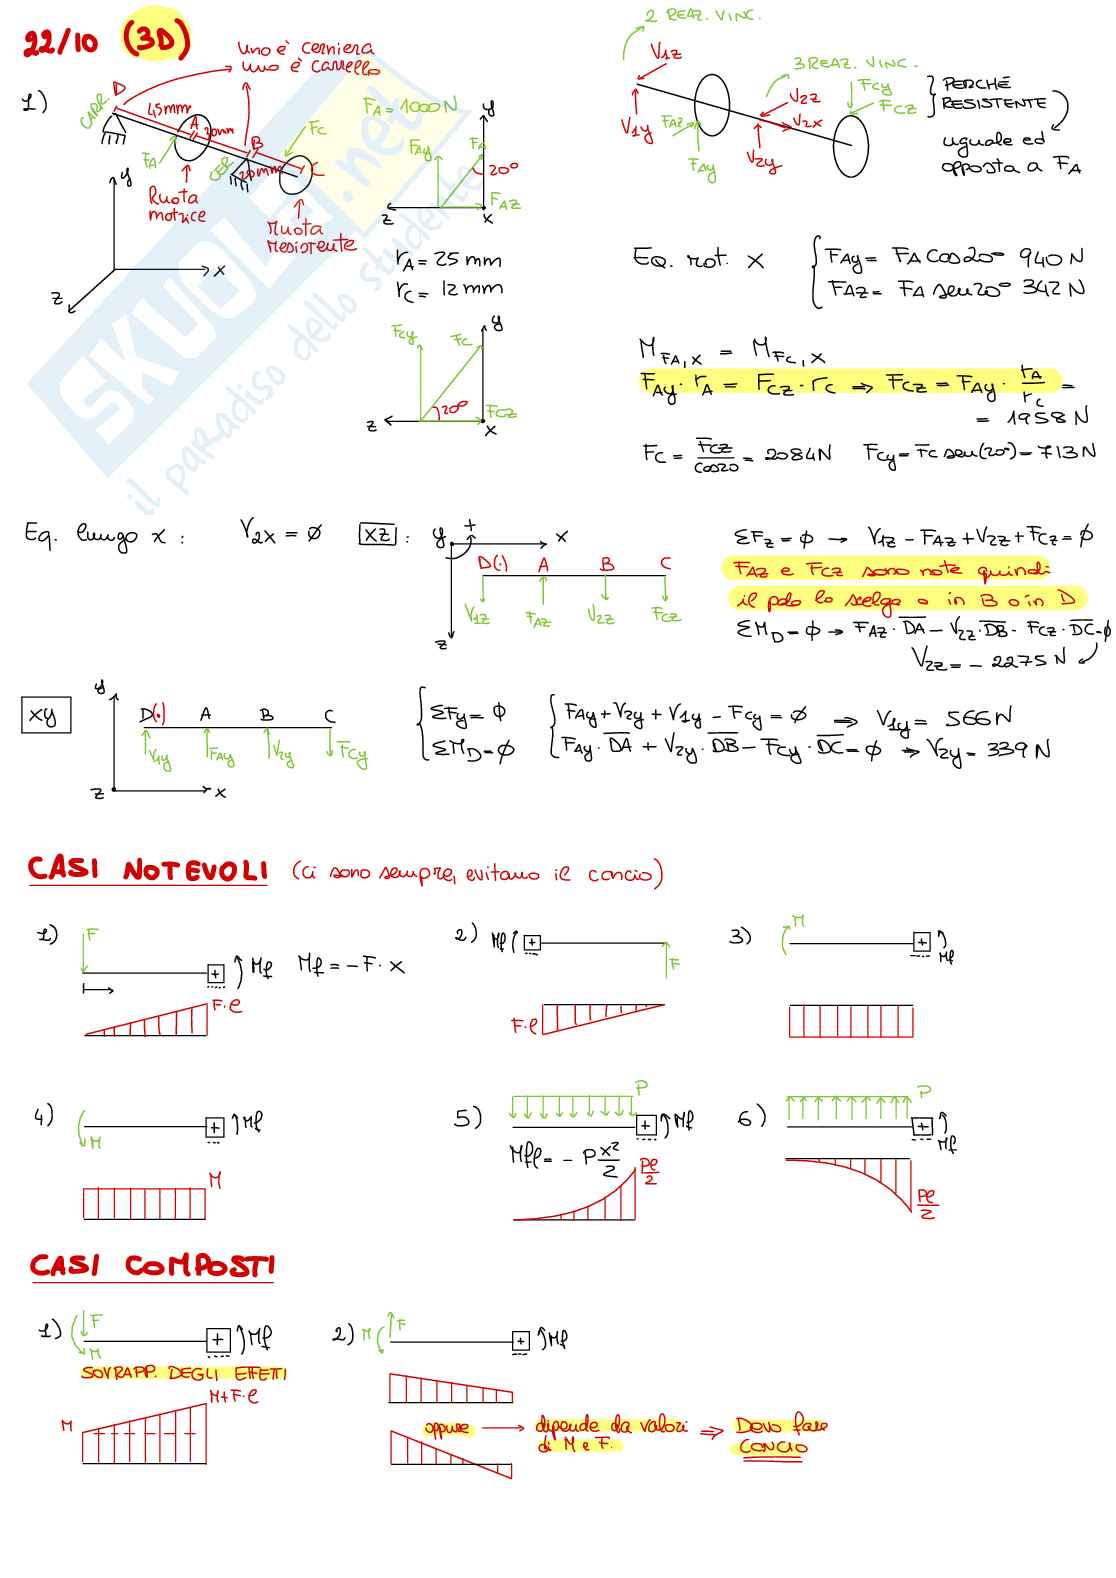 22/10 (3D)
Uno è cerniera
uno è carrello
1)
CARR.
D
45mm
A
20mm
B
CER.
20mm
C
FA
FC
Ruota
motrice
Ruota
resistente
y
x
z
FA = 1000N
y
FAy
FA
20°
FAZ
z
x
rA = 25 mm
rC = 12 mm
y
FCy
FC
20°
FCZ
z
x
2 REAZ. VINC.
V1Z
3 REAZ. VINC.
V1y
FAZ
FAy
V2Z
V2X
V2y
FCy
FCZ
PERCHÉ
RESISTENTE
uguale ed
opposta a FA
Eq. rot. x
FAy = FA cos20° 940 N
FAZ = FA sen20° 342 N
MFA,X = MFC,X
FAy · rA = FCZ · rC ⇒ FCZ = FAy · rA/rC =
= 1958 N
FC = FCZ/cos20 = 2084N FCy = FC sen(20°) = 713N
Eq. lungo x : V2X = ∅
xz :
y
+
x
D(·) A B C
V1Z FAZ V2Z FCZ
z
ΣFZ = ∅ → V1Z - FAZ + V2Z + FCZ = ∅
FAZ e FCZ sono note quindi
il polo lo scelgo o in B o in D
ΣMD = ∅ → FAZ · DA - V2Z · DB - FCZ · DC = ∅
V2Z = - 2275 N
xy
y
D(·) A B C
V1y FAy V2y FCy
z x
ΣFy = ∅
ΣMD = ∅
FAy + V2y + V1y - FCy = ∅ ⇒ V1y = 566N
FAy · DA + V2y · DB - FCy · DC = ∅ → V2y = 339 N
CASI NOTEVOLI (ci sono sempre, evitano il concio)
1)
F
Mf
Mf = - F · x
F·l
2)
Mf
F
F·l
3)
M
Mf
4)
M
Mf
M
5)
P
Mf
Mfl = - P x²/2
Pl/2
6)
P
Mf
Pl/2
CASI COMPOSTI
1)
F
M
Mf
SOVRAPP. DEGLI EFFETTI
M
M+F·l
2)
M
F
Mf
oppure → dipende da valori ⇒ Devo fare
di M e F. CONCIO
SKUOLA.net
il paradiso dello studente